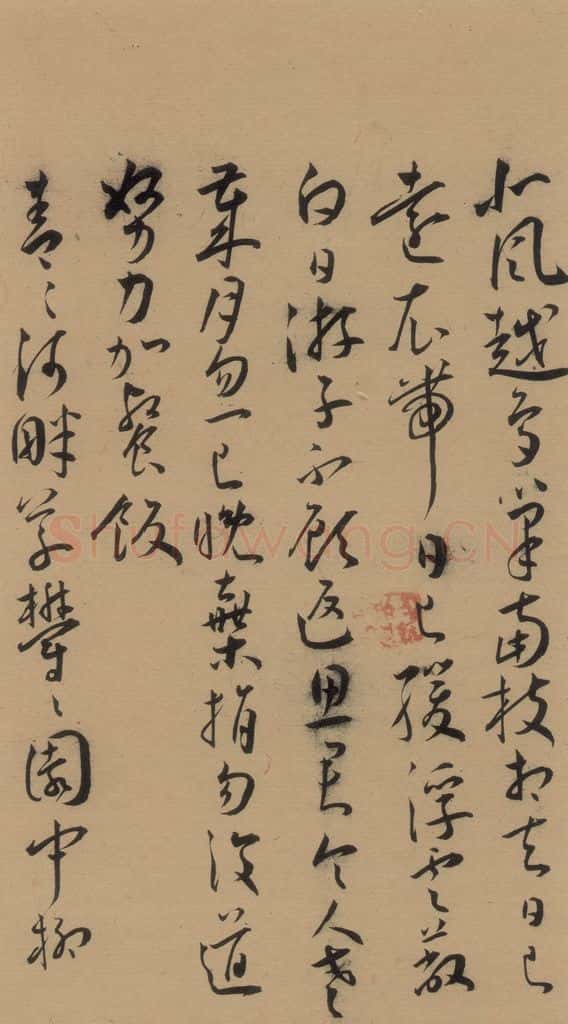 北風越鳥巢南枝相去日已
遠衣帶日已緩浮雲蔽
白日游子不顧返思君令人老
歲月忽已晚棄捐勿復道
努力加餐飯
青〻河畔草鬱〻園中柳
Shufawang.CN